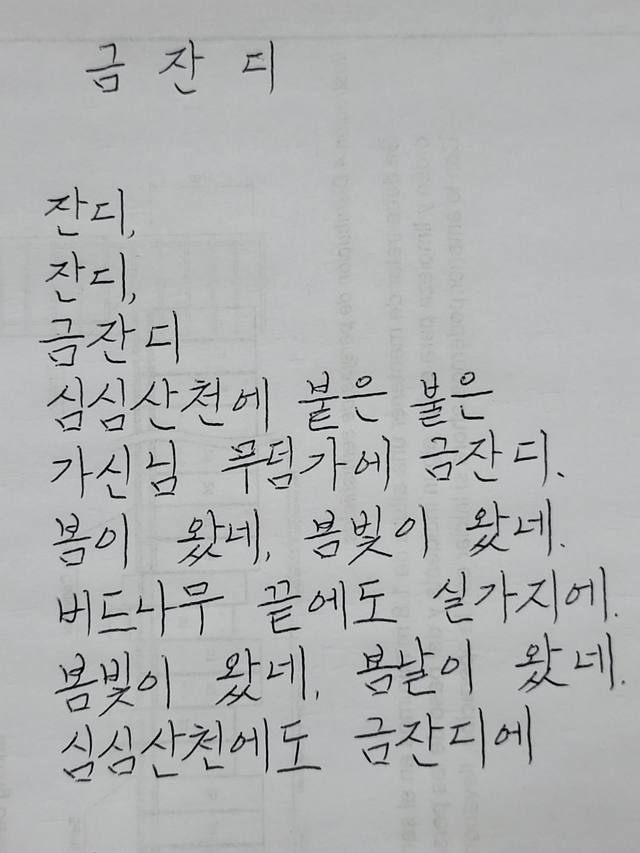 금 잔 디
잔디,
잔디,
금잔디
심심산천에 붙은 불은
가신님 무덤가에 금잔디.
봄이 왔네, 봄빛이 왔네.
버드나무 끝에도 실가지에.
봄빛이 왔네, 봄날이 왔네.
심심산천에도 금잔디에